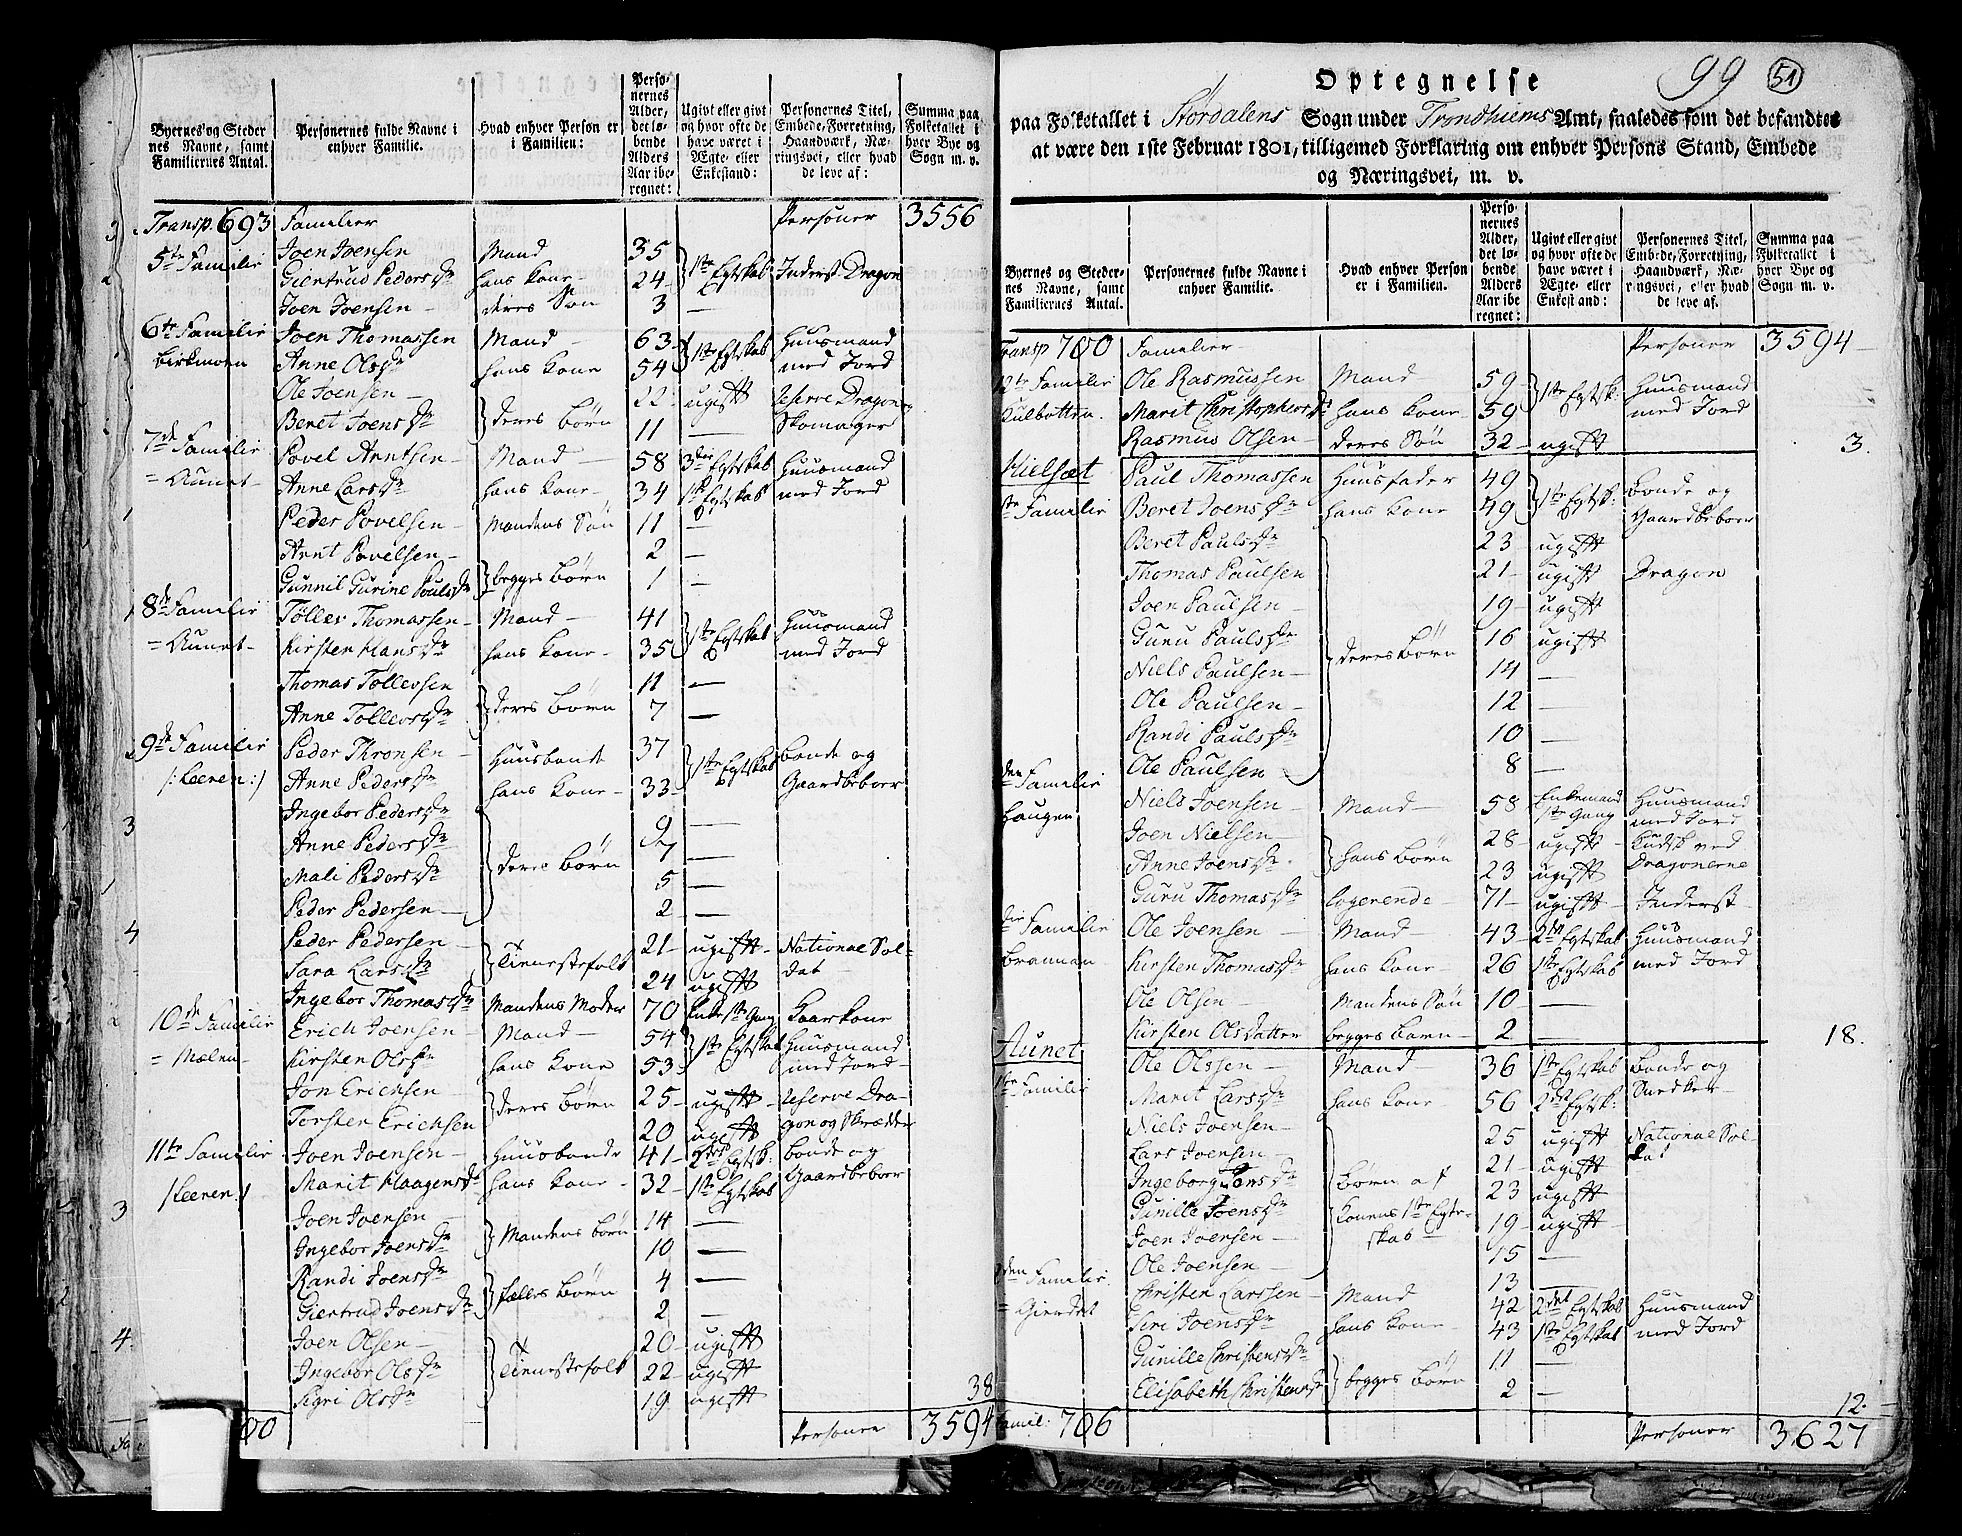 Byernes og Steder nes Navne, samt Familiernes Antal.
Personernes fulde Navne i enhver Familie.
Hvad enhver Person er i Familien:
Personernes Alder, det løbende Alders Aar iberegnet:
Ugivt eller givt og hvor ofte de have været i Ægte- eller Enkestand:
Personernes Titel, Embede, Forretning, Haandværk, Næringsvei, eller hvad de leve af:
Summa paa Folketallet i hver Bye og Sogn m. v.
Transp. 693 Familier Personer 3556
5te Familie Joen Joensen Mand 35 1ste Egtskab Inderst Dragon
Giertrud Peders Dr hans Kone 24
Joen Joensen deres Søn 3 —
6te Familie Joen Thomassen Mand 63 1ste Egtskab Huusmand
Birkmoen Anne Ols Dr hans Kone 54 med Jord
Ole Joensen deres Børn 22 ugift reserve Dragon
Beret Joens Dr 11 — Skomager
7de Familie Povel Arntsen Mand 58 3die Egtskab Huusmand
= Aunet Anne Lars Dr hans Kone 34 1ste Egtskab med Jord
Peder Povelsen Mandens Søn 11 —
Arnt Povelsen begges Børn 2 —
Gunnil Gurine Pouls Dr 1 —
8de Familie Tøller Thomassen Mand 41 1ste Egtskab Huusmand
= Aunet Kirsten Hans Dr hans Kone 35 med Jord
Thomas Tøllersen deres Børn 11 —
Anne Tøllers Dr 7 —
9de Familie Peder Thronsen Huusbonde 37 1ste Egtskab Bonde og
/: Leeren :/ Anne Peders Dr hans Kone 33 Gaardbeboer
Ingebor Peders Dr deres Børn 9 —
Anne Peders Dr 7 —
Mali Peders Dr 5 —
Peder Pedersen 2 —
Peder Pedersen Tienestefolk 21 ugift National Sol-
Sara Lars Dr 24 ugift dat
Ingebor Thomas Dr Mandens Moder 70 Enke 1ste Gang Kaarkone
10de Familie Erich Joensen Mand 54 1ste Egtskab Huusmand
= Mælen Kirsten Ols Dr hans Kone 53 med Jord
Jon Erichsen deres Børn 25 ugift reserve Dra-
Torsten Erichsen 20 ugift gon og Skrædder
11te Familie Joen Joensen Huusbonde 41 2det Egtsk: Bonde og
/Leeren:/ Marit Haagens Dr hans Kone 32 1ste Egtskab Gaardbeboer
Joen Joensen Mandens Børn 14 —
Ingebor Joens Dr 10 —
Randi Joens Dr fælles Børn 4 —
Giertrud Joens Dr 2 —
Joen Olsen Tienestefolk 20 ugift
Ingebor Ols Dr 22 ugift
Sigri Ols Dr 19 ugift
38
00 Personer 3594
99 51
Optegnelse
paa Folketallet i Størdalens Sogn under Trondhiems Amt, saaledes som det befandtes
at være den 1ste Februar 1801, tilligemed Forklaring om enhver Persons Stand, Embede
og Næringsvei, m. v.
Byernes og Stedernes Navne, samt Familiernes Antal.
Personernes fulde Navne i enhver Familie.
Hvad enhver Person er i Familien.
Personernes Alder, det løbende Alders Aar iberegnet:
Ugivt eller givt og hvor ofte de have været i Ægte- eller Enkestand:
Personernes Titel, Embede, Forretning, Haandværk, Næringsvei, eller hvad de leve af.
Summa paa Folketallet i hver Bye og Sogn m. v.
Transp 700 Familier Personer 3594
12te Familie Ole Rasmussen Mand 59 1ste Egtsk: Huusmand
Kulbotten. Marit Christophers Dr hans Kone 59 med Jord
Rasmus Olsen deres Søn 32 ugift
3.
Kielsæt Paul Thomassen Huusfader 49 1ste Egtsk: Bonde og
ste Familie Beret Joens Dr hans Kone 49 Gaardbeboer
Beret Pauls Dr deres Børn 23 ugift
Thomas Paulsen 21 ugift Dragon
Joen Paulsen 19 ugift
Guru Pauls Dr 16 ugift
Niels Paulsen 14 —
Ole Paulsen 12 —
Randi Pauls Dr 10 —
Ole Paulsen 8 —
den Familie Niels Joensen Mand 58 Enkemand 1ste Gang Huusmand med Jord
Haugen Joen Nielsen hans Børn 28 ugift Kudsk ved
Anne Joens Dr 23 ugift Dragonerne
Guru Thomas Dr logerende 71 ugift Inderst
die Familie Ole Joensen Mand 43 2det Egtskab Huusmand
Brannan Kirsten Thomas Dr hans Kone 26 1ste Egtskab med Jord
Ole Olsen Mandens Søn 10 —
Kirsten Olsdatter begges Barn 2 —
18.
Aunet Ole Olssen Mand 36 1ste Egtskab Bonde og
1ste Familie Marit Lars Dr hans Kone 56 2det Egtsk:
Niels Joensen Børn af Konens 1ste Egteskab 25 ugift National Sol-
Lars Joensen 21 ugift dat
Ingeborg Joens Dr 23 ugift
Gunille Joens Dr 19 ugift
Joen Joensen 15 —
Ole Joensen 13 —
den Familie Christen Larssen Mand 42 2det Egtskab Huusmand
= Gierdet Siri Joens Dr hans Kone 43 1ste Egtskab med Jord
Gunille Christens Dr begges Børn 11 —
Elisabeth Christens Dr 2 —
12.
Famil: 706 Personer 3627